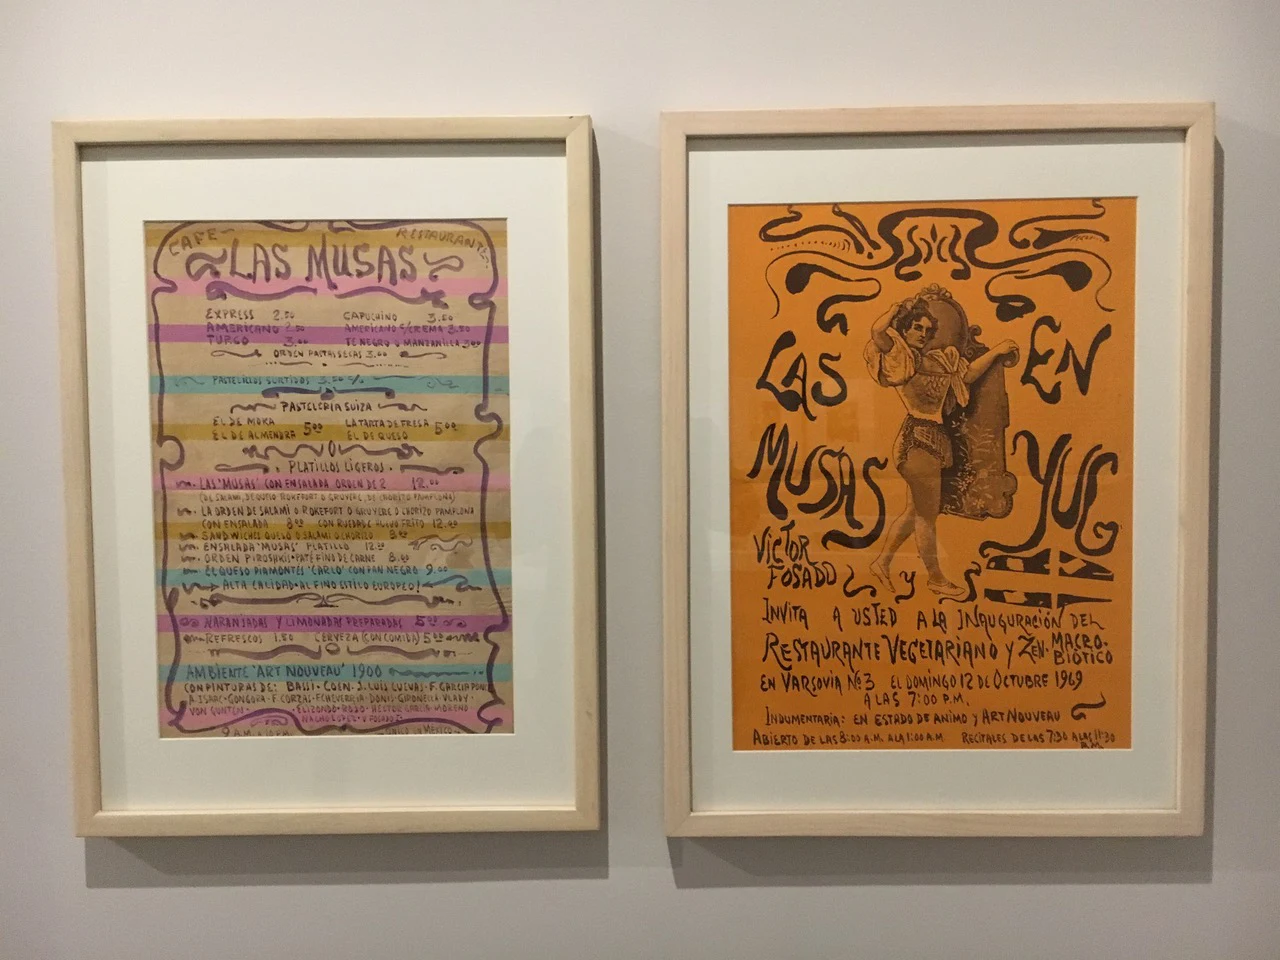 CAFE RESTAURANTE
LAS MUSAS
EXPRESS 2.50 CAPUCHINO 3.50
AMERICANO 2.50 AMERICANO C/CREMA 3.50
TURCO 3.00 TE NEGRO O MANZANILLA 3.00
ORDEN PASTAS SECAS 3.00
PASTELILLOS SURTIDOS 3.00 c/u
PASTELERIA SUIZA
EL DE MOKA LA TARTA DE FRESA
EL DE ALMENDRA 5.00 EL DE QUESO 5.00
PLATILLOS LIGEROS
LAS "MUSAS" CON ENSALADA ORDEN DE 2 12.00
(DE SALAMI, DE QUESO ROKEFORT O GRUYERE, DE CHORIZO PAMPLONA)
LA ORDEN DE SALAMI O ROKEFORT O GRUYERE O CHORIZO PAMPLONA
CON ENSALADA 8.00 CON HUEVO FRITO 12.00
SANDWICHES QUESO O SALAMI O CHORIZO 8.00
ENSALADA "MUSAS" PLATILLO 12.00
ORDEN PIROSHKI-PATE FINO DE CARNE 8.00
EL QUESO PIAMONTES "CARLO" CON PAN NEGRO 9.00
ALTA CALIDAD · AL FINO ESTILO EUROPEO!
NARANJADAS Y LIMONADAS PREPARADAS 5.00
REFRESCOS 1.50 CERVEZA (CON COMIDA) 5.00
AMBIENTE "ART NOUVEAU" 1900
CON PINTURAS DE: BASSI · COEN · J. LUIS CUEVAS · F. GARCIA PONCE
A. ISAAC · GONGORA · F. CORZAS · ECHEVERRIA DONIS · GIRONELLA · VLADY ·
VON GUNTEN · ELIZONDO · ROJO · HECTOR GARCIA · MORENO
NACHO LOPEZ · V. FOSADO
9 A.M. MEXICO
LAS MUSAS EN YUG
VICTOR FOSADO Y
INVITA A USTED A LA INAUGURACIÓN DEL
RESTAURANTE VEGETARIANO Y ZEN-MACRO-
BIÓTICO
EN VARSOVIA No. 3 EL DOMINGO 12 DE OCTUBRE 1969
A LAS 7:00 P.M.
INDUMENTARIA: EN ESTADO DE ANIMO Y ART NOUVEAU
ABIERTO DE LAS 8:00 A.M. A LA 1:00 A.M. RECITALES DE LAS 7:30 A LAS 11:30
P.M.